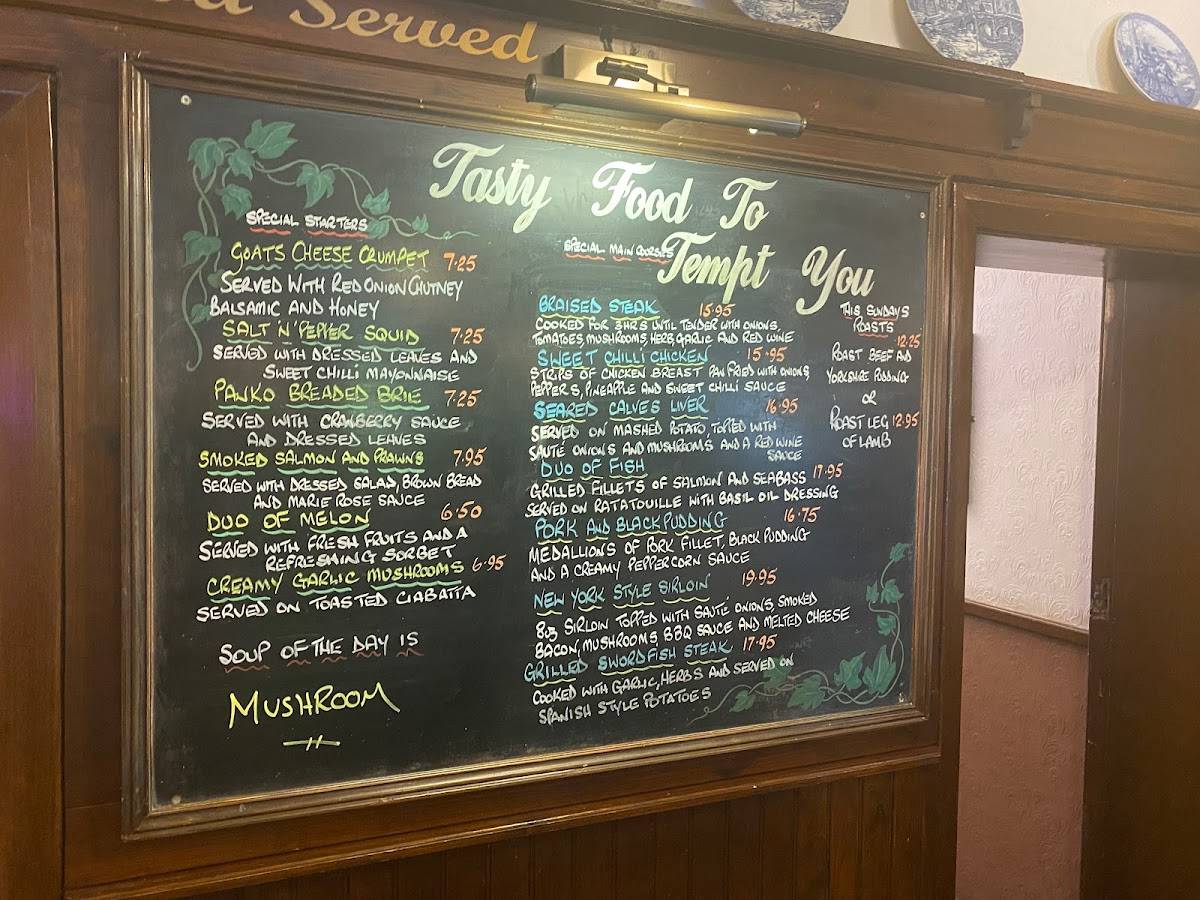 Served
Tasty Food To
Tempt You
SPECIAL STARTERS
GOATS CHEESE CRUMPET 7.25
SERVED WITH RED ONION CHUTNEY
BALSAMIC AND HONEY
SALT 'N' PEPPER SQUID 7.25
SERVED WITH DRESSED LEAVES AND
SWEET CHILLI MAYONNAISE
PANKO BREADED BRIE 7.25
SERVED WITH CRANBERRY SAUCE
AND DRESSED LEAVES
SMOKED SALMON AND PRAWNS 7.95
SERVED WITH DRESSED SALAD, BROWN BREAD
AND MARIE ROSE SAUCE
DUO OF MELON 6.50
SERVED WITH FRESH FRUITS AND A
REFRESHING SORBET
CREAMY GARLIC MUSHROOMS 6.95
SERVED ON TOASTED CIABATTA
SOUP OF THE DAY IS
MUSHROOM
SPECIAL MAIN COURSES
BRAISED STEAK 15.95
COOKED FOR 3HRS UNTIL TENDER WITH ONIONS,
TOMATOES, MUSHROOMS, HERB, GARLIC AND RED WINE
SWEET CHILLI CHICKEN 15.95
STRIPS OF CHICKEN BREAST PAN FRIED WITH ONIONS,
PEPPERS, PINEAPPLE AND SWEET CHILLI SAUCE
SEARED CALVES LIVER 16.95
SERVED ON MASHED POTATO, TOPPED WITH
SAUTÉ ONIONS AND MUSHROOMS AND A RED WINE
SAUCE
DUO OF FISH
GRILLED FILLETS OF SALMON AND SEABASS 17.95
SERVED ON RATATOUILLE WITH BASIL OIL DRESSING
PORK AND BLACK PUDDING 16.75
MEDALLIONS OF PORK FILLET, BLACK PUDDING
AND A CREAMY PEPPERCORN SAUCE
NEW YORK STYLE SIRLOIN 19.95
8oz SIRLOIN TOPPED WITH SAUTÉ ONIONS, SMOKED
BACON, MUSHROOMS, BBQ SAUCE AND MELTED CHEESE
GRILLED SWORDFISH STEAK 17.95
COOKED WITH GARLIC, HERBS AND SERVED ON
SPANISH STYLE POTATOES
THIS SUNDAYS
ROASTS
12.25
ROAST BEEF AND
YORKSHIRE PUDDING
OR
ROAST LEG 12.95
OF LAMB